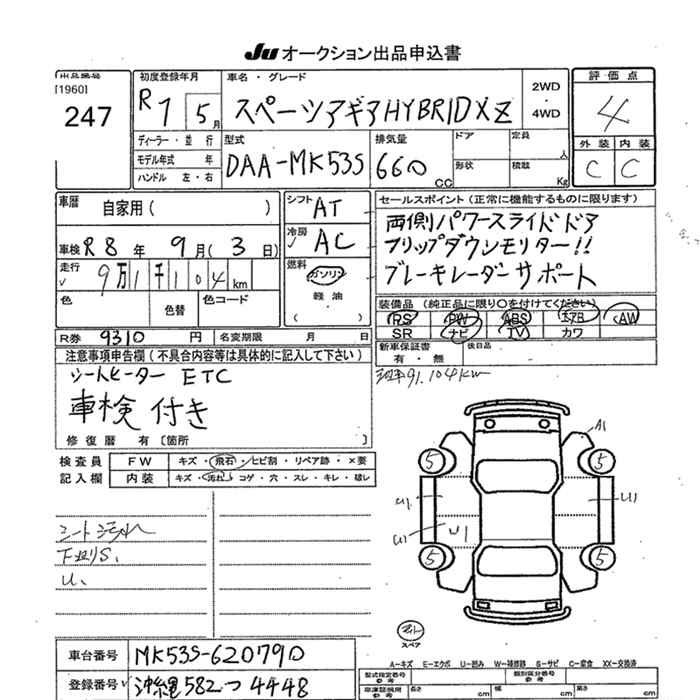 JU オークション出品申込書
出品番号
[1960]
247
初度登録年月
R1 5月
車名・グレード
スペーシアギアHYBRIDXZ
2WD
・
4WD
評価点
4
外装 内装
C C
ディーラー・並行
モデル年式 年
ハンドル 左・右
型式
DAA-MK53S
排気量
660 CC
ドア
形状
定員 人
積載 Kg
車歴
自家用( )
車検 R8年 9月(3日)
走行 9万1千104km
色
色替
色コード
シフト AT
冷房 AC
燃料
ガソリン
軽油
( )
セールスポイント(正常に機能するものに限ります)
両側パワースライドドア
フリップダウンモリター!!
ブレーキレーダーサポート
装備品(純正品に限り○を付けてください)
RS PW ABS エアB AW
SR ナビ TV カワ
R券 9310円
名変期限 月 日
新車保証書
有・無
後日品
注意事項申告欄(不具合内容等は具体的に記入して下さい)
シートヒーター ETC
車検付き
修復歴 有〔箇所 〕
走行91,104km
検査員
記入欄
FW キズ・飛石・ヒビ割・リペア跡・×要
内装 キズ・汚れ・コゲ・穴・スレ・キレ・破レ
シート汚れ
下回りS、
U、
A1
5 5
U1 U1
U1 U1
5 5
スペア
車台番号 MK53S-620790
登録番号 沖縄582つ4448
A-キズ E-エクボ U-凹み W-補修跡 S-サビ C-腐食 XX-交換済
型式指定番号
参考
類別区分番号
参考
長さ cm
幅 cm
高さ cm